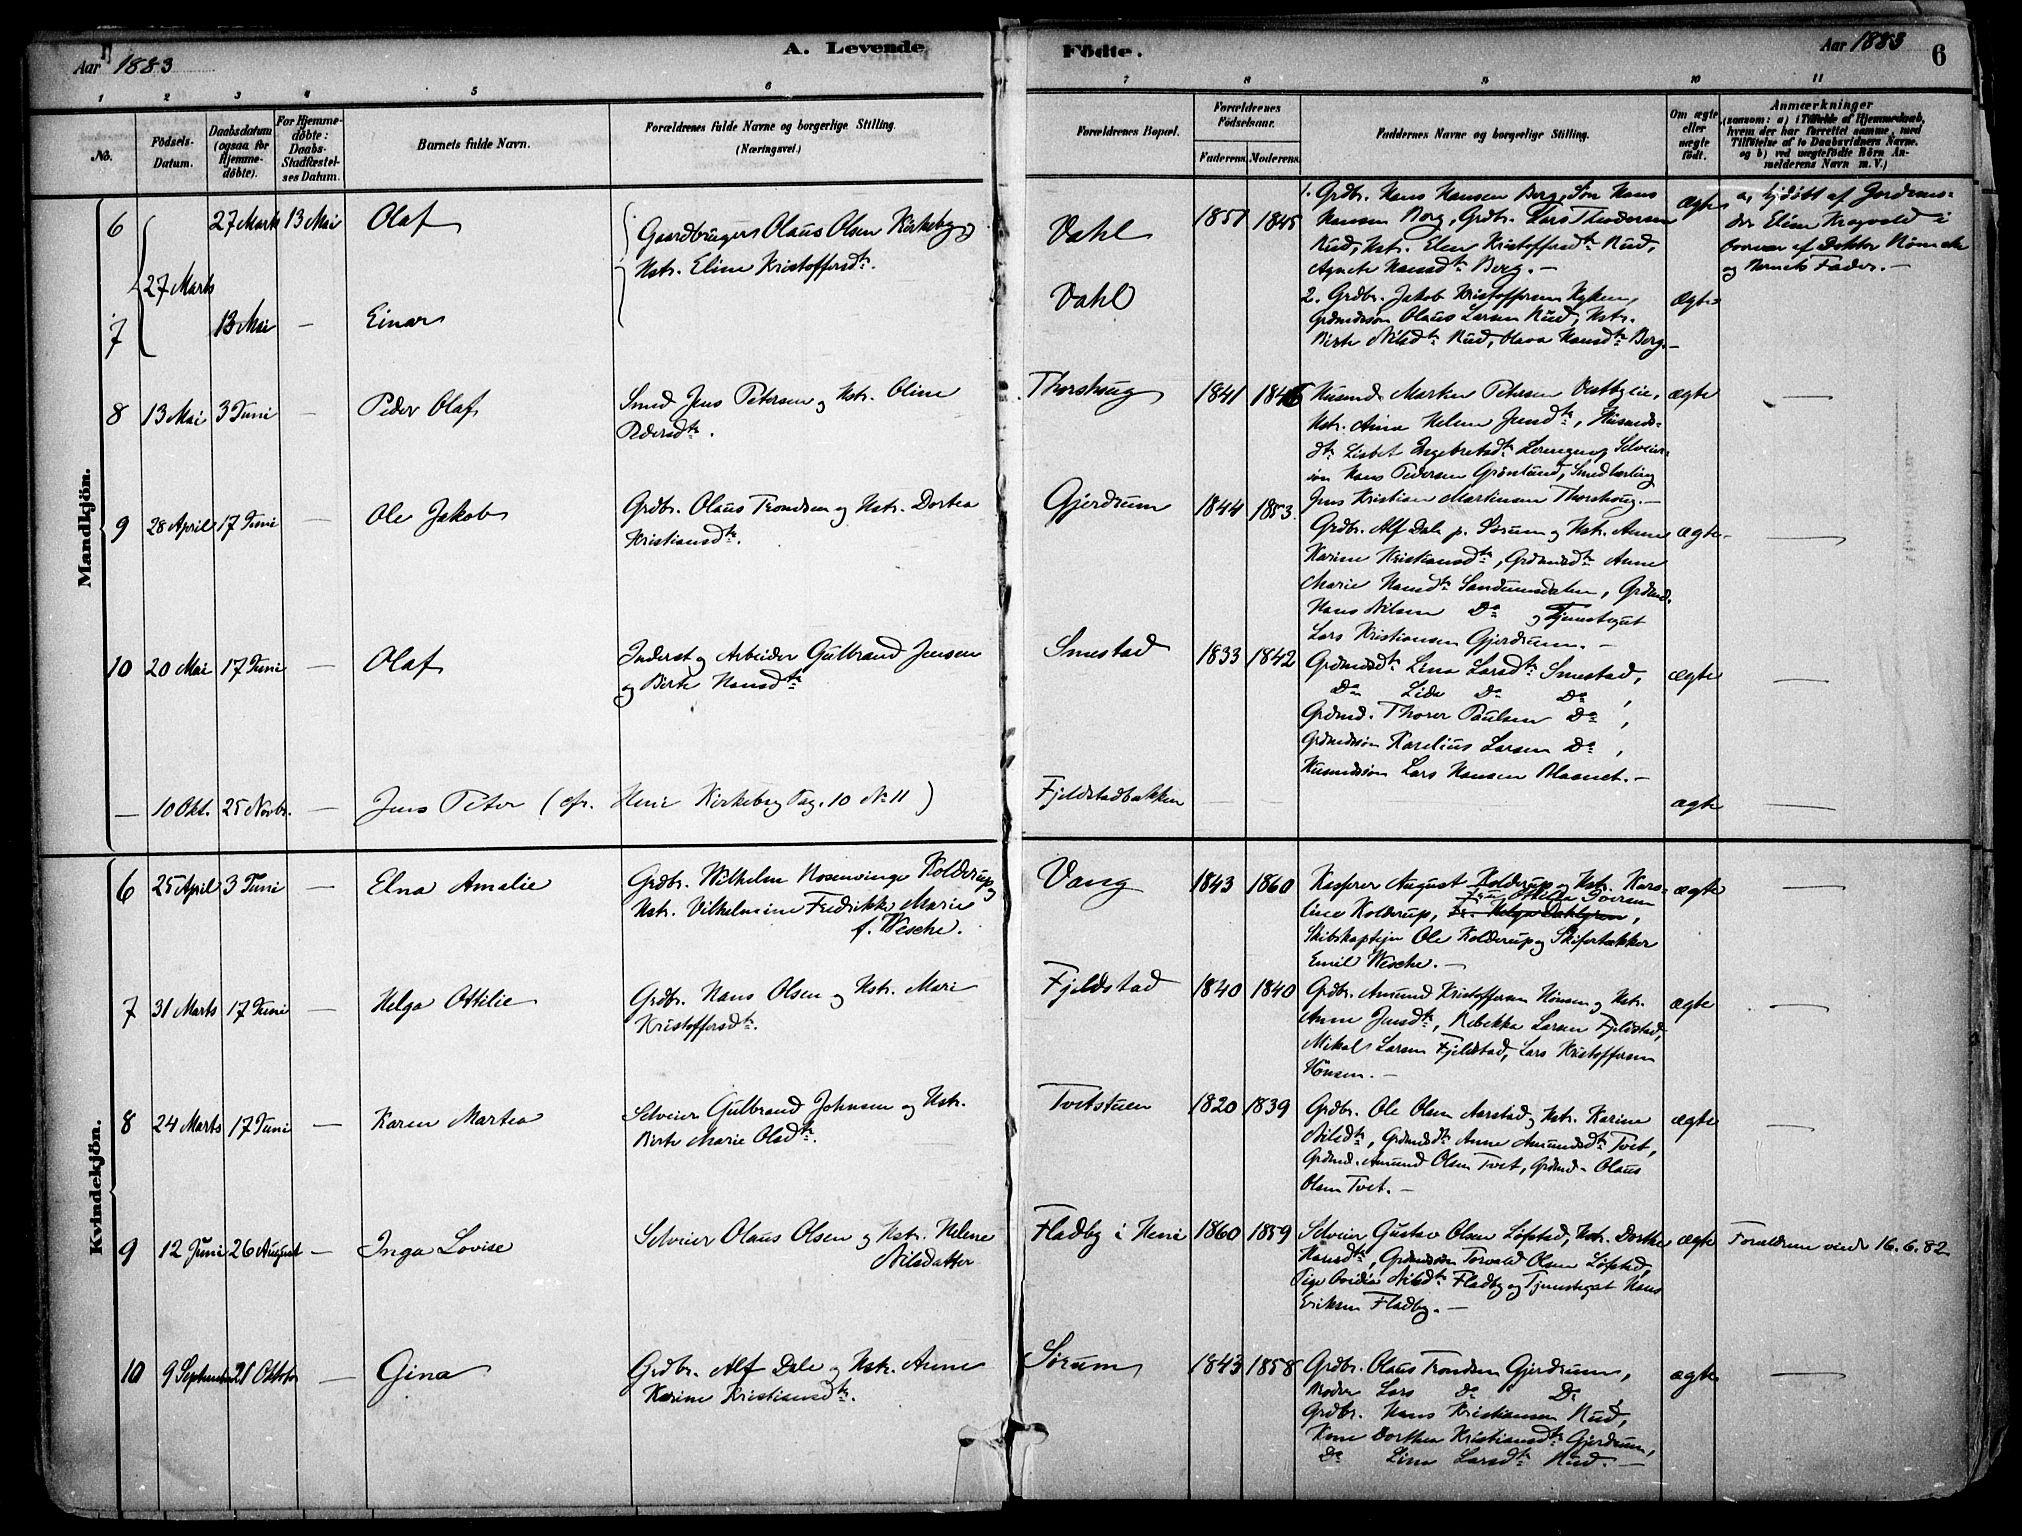 Aar 1883
A. Levende
Födte.
Aar 1883
6
1 2 3 4 5 6 7 8 9 10 11
No.
Födsels-
Datum.
Daabsdatum
(ogsaa for
Hjemme-
döbte).
For Hjemme-
döbte:
Daabs-
Stadfæstel-
ses Datum.
Barnets fulde Navn.
Forældrenes fulde Navne og borgerlige Stilling.
(Næringsvei.)
Forældrenes Bopæl.
Forældrenes
Födselsaar.
Faderens. Moderens.
Faddernes Navne og borgerlige Stilling.
Om ægte
eller
uægte
født.
Anmærkninger
(saasom: a) i Tilfælde af Hjemmedaab,
hvem der har forrettet samme, med
Tilføielse af to Daabsvidners Navne.
og b) ved uægtefødte Börn An-
melderens Navn m. V.)
Mandkjön.
6 27 Marts 27 Marts 13 Mai Olaf
Gaardbruger Olaus Olsen Kirkeby og
Hstr. Eline Kristoffersdtr.
Vahl 1851 1845
1. Grdbr. Hans Hansen Berg, Søn Hans
Hansen Berg, Grdbr. Lars Thordersen
Rud, Hstr. Elen Kristoffersdtr Rud,
Agnete Hansdtr Berg. —
ægte
a, hjdöbt af Jordemo-
der Eline Kragvold i
Overvær af Doktor
og Barnets Fader. —
7 13 Mai — Einar
Vahl
2. Grdbr. Jakob Kristoffersen
Grdmdssøn Olaus Larsen Rud, Hstr.
Birte Nilsdtr Rud, Olava Hansdtr Berg. —
ægte
8 13 Mai 3 Juni — Peder Olaf
Smed Jens Petersen og Hstr. Oline
Pedersdtr.
Thorshoug 1841 1846
Husmd. Marken Petersen Vestbylie,
Hstr. Anne Helene Jensdtr, Husmds-
dtr Lisbet Ingebretsdtr Lorengen og Selveier-
søn Hans Pedersen Grönlund, Smedlærling
Jens Kristian Martinsen Thorshoug. —
ægte —
9 28 April 17 Juni — Ole Jakob
Grdbr. Olaus Trondsen og Hstr. Dortea
Kristiansdtr.
Gjerdrum 1844 1853.
Grdbr. Alf Dale p. Sørum og Hstr. Anne
Karine Kristiansdtr, Grdmdsdtr Anne
Marie Hansdtr Sandumsdalen, Grdmd.
Hans Nilsen Do og Tjenstegut
Lars Kristiansen Gjerdrum. —
ægte. —
10 20 Mai 17 Juni — Olaf
Inderst og Arbeider Gulbrand Jensen
og Birte Hansdtr
Smestad 1833 1842
Grdmdsdtr Lina Larsdtr Smestad,
Do Lida Do Do,
Grdmd. Thorer Paulsen Do,
Grdmdssøn Karelius Larsen Do,
Husmdssøn Lars Hansen Blaanet. —
ægte —
— 10 Okt. 25 Novbr. — Jens Peter (cfr. Heni Kirkebog Pag. 10 No 11)
Fjeldstadbakken — — — ægte —
Kvindekjön.
6 25 April 3 Juni — Elna Amalie
Grdbr. Wilhelm Rosenvinge Kolderup og
Hstr. Vilhelmine Fredrikke Marie
f. Wesche.
Vang 1843 1860
Kasserer August Kolderup og Hstr. Karo-
line Kolderup, Fru Ottilia Iversen
Fr. Helga Dahlgren,
Skibskaptejn Ole Kolderup og Skifertækker
Emil Wesche. —
ægte —
7 31 Marts 17 Juni — Helga Ottilie
Grdbr. Hans Olsen og Hstr. Mari
Kristoffersdtr.
Fjeldstad 1840 1840
Grdbr. Amund Kristoffersen Hönsen og Hstr.
Anne Jensdtr, Rebekka Larsen Fjeldstad,
Mikal Larsen Fjeldstad, Lars Kristoffersen
Hönsen. —
ægte —
8 24 Marts 17 Juni — Karen Martea
Selveier Gulbrand Johnsen og Hstr.
Birte Marie Olsdtr.
Tvetstuen 1820 1839
Grdbr. Ole Olsen Aarstad og Hstr. Karine
Nilsdtr, Grdmdsdtr Anne Amundsdtr Tvet,
Grdmd. Amund Olsen Tvet, Grdmd. Olaus
Olsen Tvet. —
ægte —
9 12 Juni 26 August — Inga Lovise
Selveier Olaus Olsen og Hstr. Helene
Nilsdatter
Fladby i Heni 1860 1859
Selveier Gustav Olsen Löfstad, Hstr. Dorthe
Hansdtr, Grdmdssøn Torvald Olsen Löfstad,
Pige Ovidia Nilsdtr Fladby og Tjenstegut Hans
Eriksen Fladby. —
ægte Forældrene viede 16.6.82
10 9 September 21 Oktober — Gina
Grdbr. Alf Dale og Hstr. Anne
Karine Kristiansdtr.
Sörum 1843 1858
Grdbr. Olaus Trondsen Gjerdrum,
Broder Lars do Do,
Grdbr. Hans Kristiansen Rud,
Kone Dorthea Kristiansdtr Gjerdrum,
Do Lina Larsdtr Rud. —
ægte —